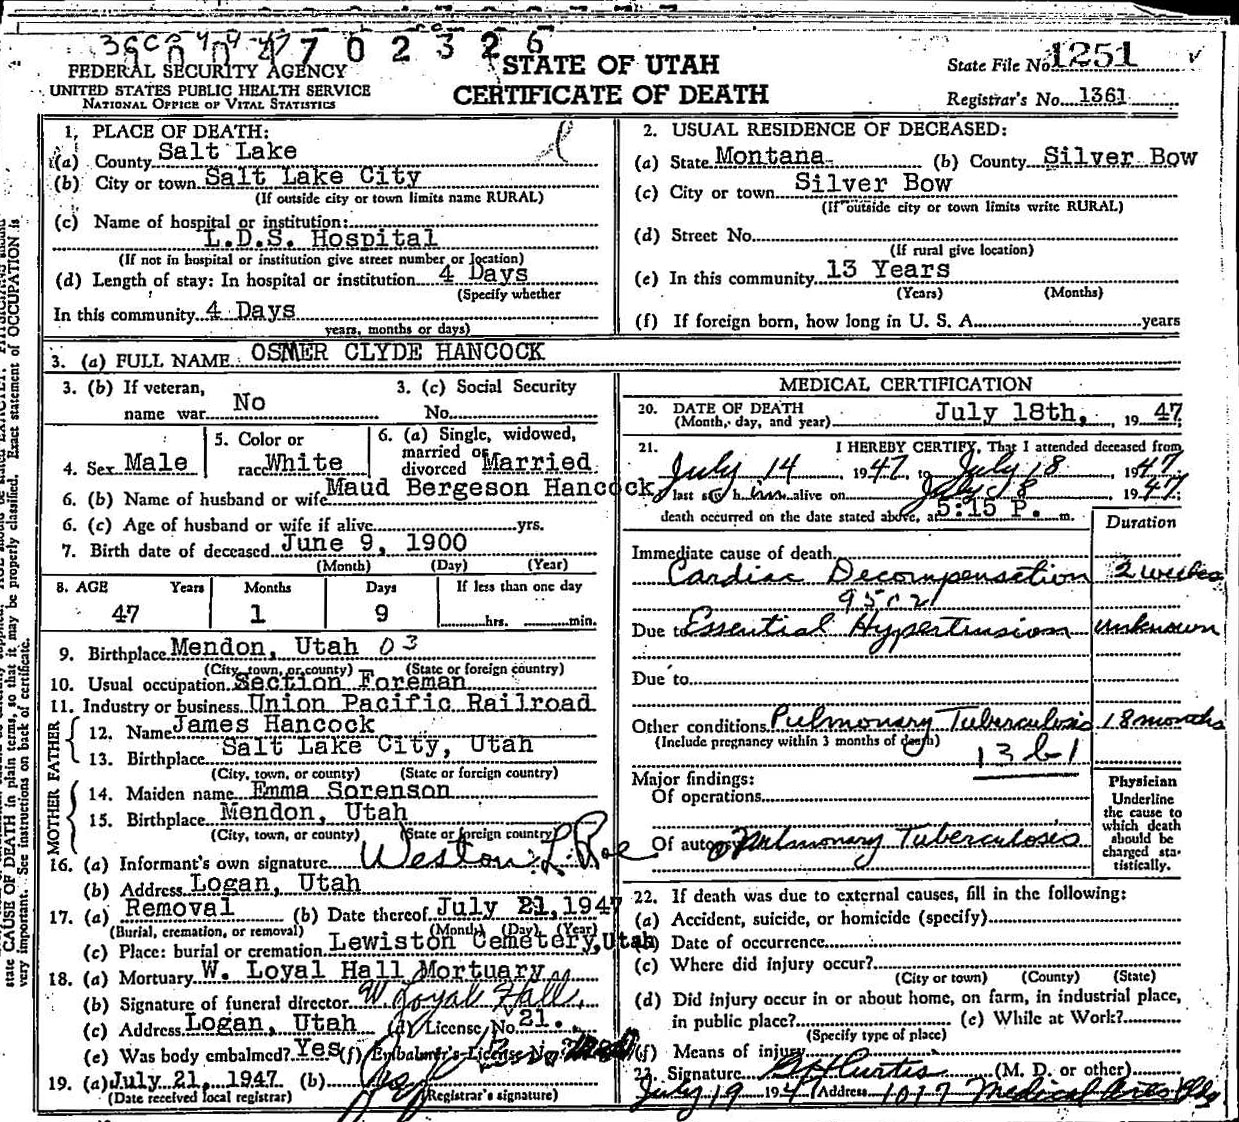 36C 0 0 4 7 0 2 3 2 6
FEDERAL SECURITY AGENCY
UNITED STATES PUBLIC HEALTH SERVICE
NATIONAL OFFICE OF VITAL STATISTICS
STATE OF UTAH
CERTIFICATE OF DEATH
State File No. 1251
Registrar's No. 1361
1. PLACE OF DEATH:
(a) County Salt Lake
(b) City or town Salt Lake City
(If outside city or town limits name RURAL)
(c) Name of hospital or institution:
L.D.S. Hospital
(If not in hospital or institution give street number or location)
(d) Length of stay: In hospital or institution 4 Days
(Specify whether
In this community 4 Days
years, months or days)
2. USUAL RESIDENCE OF DECEASED:
(a) State Montana (b) County Silver Bow
(c) City or town Silver Bow
(If outside city or town limits write RURAL)
(d) Street No.
(If rural give location)
(e) In this community 13 Years
(Years) (Months)
(f) If foreign born, how long in U. S. A. years
3. (a) FULL NAME OSMER CLYDE HANCOCK
3. (b) If veteran, name war No
3. (c) Social Security No.
4. Sex Male
5. Color or race White
6. (a) Single, widowed, married or divorced Married
6. (b) Name of husband or wife Maud Bergeson Hancock
6. (c) Age of husband or wife if alive yrs.
7. Birth date of deceased June 9, 1900
(Month) (Day) (Year)
8. AGE Years Months Days If less than one day
47 1 9 hrs. min.
9. Birthplace Mendon, Utah 03
(City, town, or county) (State or foreign country)
10. Usual occupation Section Foreman
11. Industry or business Union Pacific Railroad
FATHER
12. Name James Hancock
13. Birthplace Salt Lake City, Utah
(City, town, or county) (State or foreign country)
MOTHER
14. Maiden name Emma Sorenson
15. Birthplace Mendon, Utah
(City, town, or county) (State or foreign country)
16. (a) Informant's own signature Weston L. Roe
(b) Address Logan, Utah
17. (a) Removal (b) Date thereof July 21, 1947
(Burial, cremation, or removal) (Month) (Day) (Year)
(c) Place: burial or cremation Lewiston Cemetery, Utah
18. (a) Mortuary W. Loyal Hall Mortuary
(b) Signature of funeral director W. Loyal Hall
(c) Address Logan, Utah (d) License No. 21.
(e) Was body embalmed? Yes (f) Embalmer's License No.
19. (a) July 21, 1947 (b)
(Date received local registrar) (Registrar's signature)
MEDICAL CERTIFICATION
20. DATE OF DEATH July 18th, 1947
(Month, day, and year)
21. I HEREBY CERTIFY, That I attended deceased from
July 14 1947 to July 18 1947
I last saw him alive on July 18, 1947;
death occurred on the date stated above, at 5:15 P. m.
Duration
Immediate cause of death
Cardiac Decompensation 2 weeks
Due to Essential Hypertension unknown
Due to
Other conditions Pulmonary Tuberculosis 18 months
(Include pregnancy within 3 months of death)
13 b-1
Major findings:
Of operations
Of autopsy Pulmonary Tuberculosis
Physician
Underline
the cause to
which death
should be
charged sta-
tistically.
22. If death was due to external causes, fill in the following:
(a) Accident, suicide, or homicide (specify)
(b) Date of occurrence
(c) Where did injury occur?
(City or town) (County) (State)
(d) Did injury occur in or about home, on farm, in industrial place,
in public place? (e) While at Work?
(Specify type of place)
(f) Means of injury
23. Signature Curtis (M. D. or other)
July 19 1947 Address 1017 Medical Arts Bldg
state CAUSE OF DEATH in plain terms, so that it may be properly classified. Exact statement of OCCUPATION is
very important. See instructions on back of certificate.